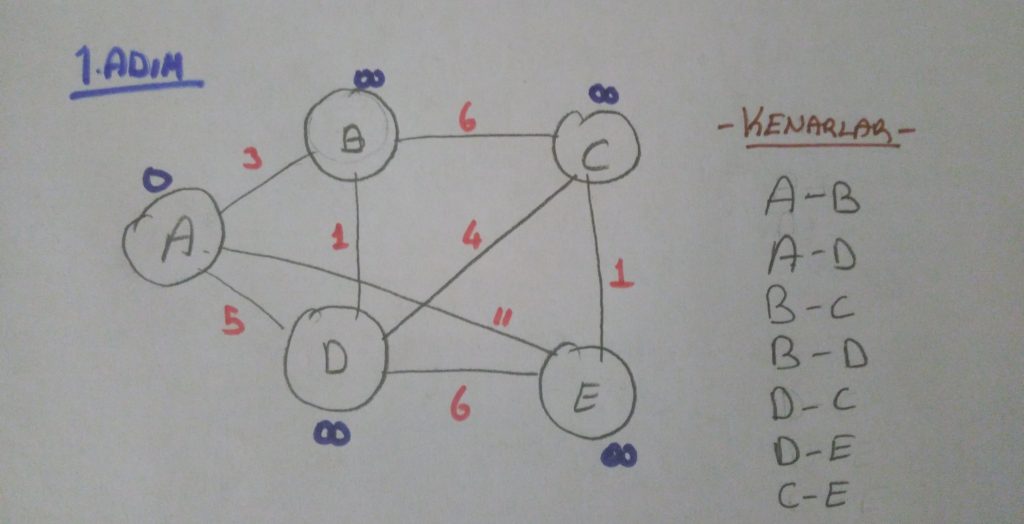 1.ADIM
∞
∞
B
6
C
3
0
A
1
4
1
5
11
D
E
6
∞
∞
-KENARLAR-
A-B
A-D
B-C
B-D
D-C
D-E
C-E